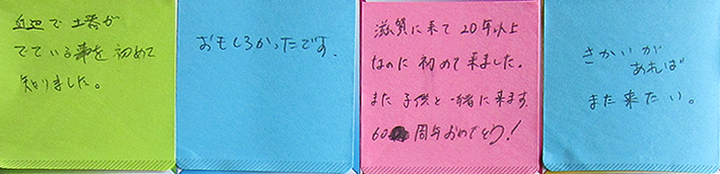 近辺で土器が
でている事を初めて
知りました。
おもしろかったです.
滋賀に来て20年以上
なのに初めて来ました。
また子供と一緒に来ます.
60周年おめでとう!
きかいが
あれば
また来たい。